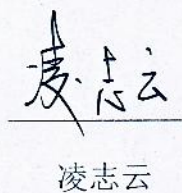 凌志云
凌志云